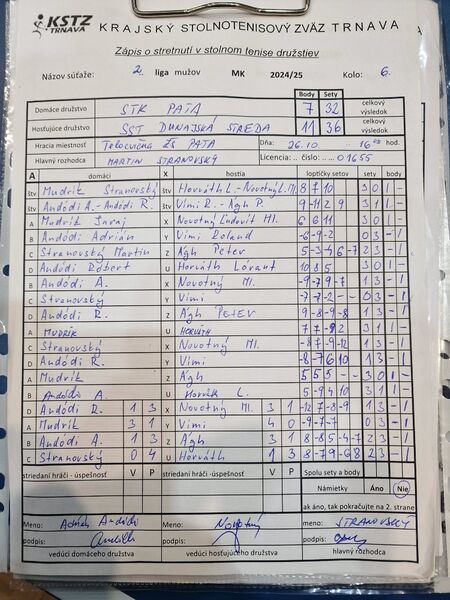 KSTZ TRNAVA
KRAJSKÝ STOLNOTENISOVÝ ZVÄZ TRNAVA
Zápis o stretnutí v stolnom tenise družstiev
Názov súťaže: 2. liga mužov MK 2024/25 Kolo: 6.
Body Sety
Domáce družstvo STK PATA 7 32 celkový výsledok
Hosťujúce družstvo SST DUNAJSKÁ STREDA 11 36 celkový výsledok
Hracia miestnosť Telocvičňa ZŠ PATA Dňa: 26.10 hod.
Hlavný rozhodca MARTIN STRANOVSKÝ Licencia: .. číslo: .... 01655
A domáci X hostia loptičky setov sety body
štv Mudrík Stranovský štv Horváth L. - Novotný L. Ml. 8 7 10 3 0 1 -
štv Andódi A. - Andódi R. štv Vimi R. - Ágh P. 9 -11 2 9 3 1 1 -
A Mudrík Juraj X Novotný Ľudovít Ml. 6 6 11 3 0 1 -
B Andódi Adrián Y Vimi Roland -6 -9 -2 0 3 - 1
C Stranovský Martin Z Ágh Peter 5 -3 4 6 -7 2 3 - 1
D Andódi Róbert U Horváth Lórant 10 8 5 3 0 1 -
B Andódi A. X Novotný Ml. -9 7 9 -7 1 3 - 1
C Stranovský Y Vimi -7 -7 -2 - - 0 3 - 1
D Andódi R. Z Ágh PETER 9 -8 -9 -8 1 3 - 1
A MUDRÍK U HORVÁTH 3 1 1 -
C Stranovský X Novotný Ml. -8 7 -9 -12 1 3 - 1
D Andódi R. Y Vimi 1 3 - 1
A Mudrík Z Ágh 5 5 5 - - 3 0 1 -
B Andódi A. U 5 -9 4 10 3 1 1 -
D Andódi R. 1 3 X Novotný Ml. 3 1 -12 7 -8 -9 1 3 - 1
A Mudrík 3 1 Y Vimi 4 0 -9 -7 -7 0 3 - 1
B Andódi A. 1 3 Z Ágh 3 1 8 -8 5 -4 -7 2 3 - 1
C Stranovský 0 4 U Horváth 1 3 8 -7 9 -6 8 2 3 - 1
striedaní hráči - úspešnosť V P striedaní hráči - úspešnosť V P Spolu sety a body
Námietky Áno Nie
ak áno, tak pokračujte na 2. strane
Meno: Adrián Andódi Meno: Novotný Meno: STRANOVSKÝ
podpis: podpis: podpis:
vedúci domáceho družstva vedúci hosťujúceho družstva hlavný rozhodca